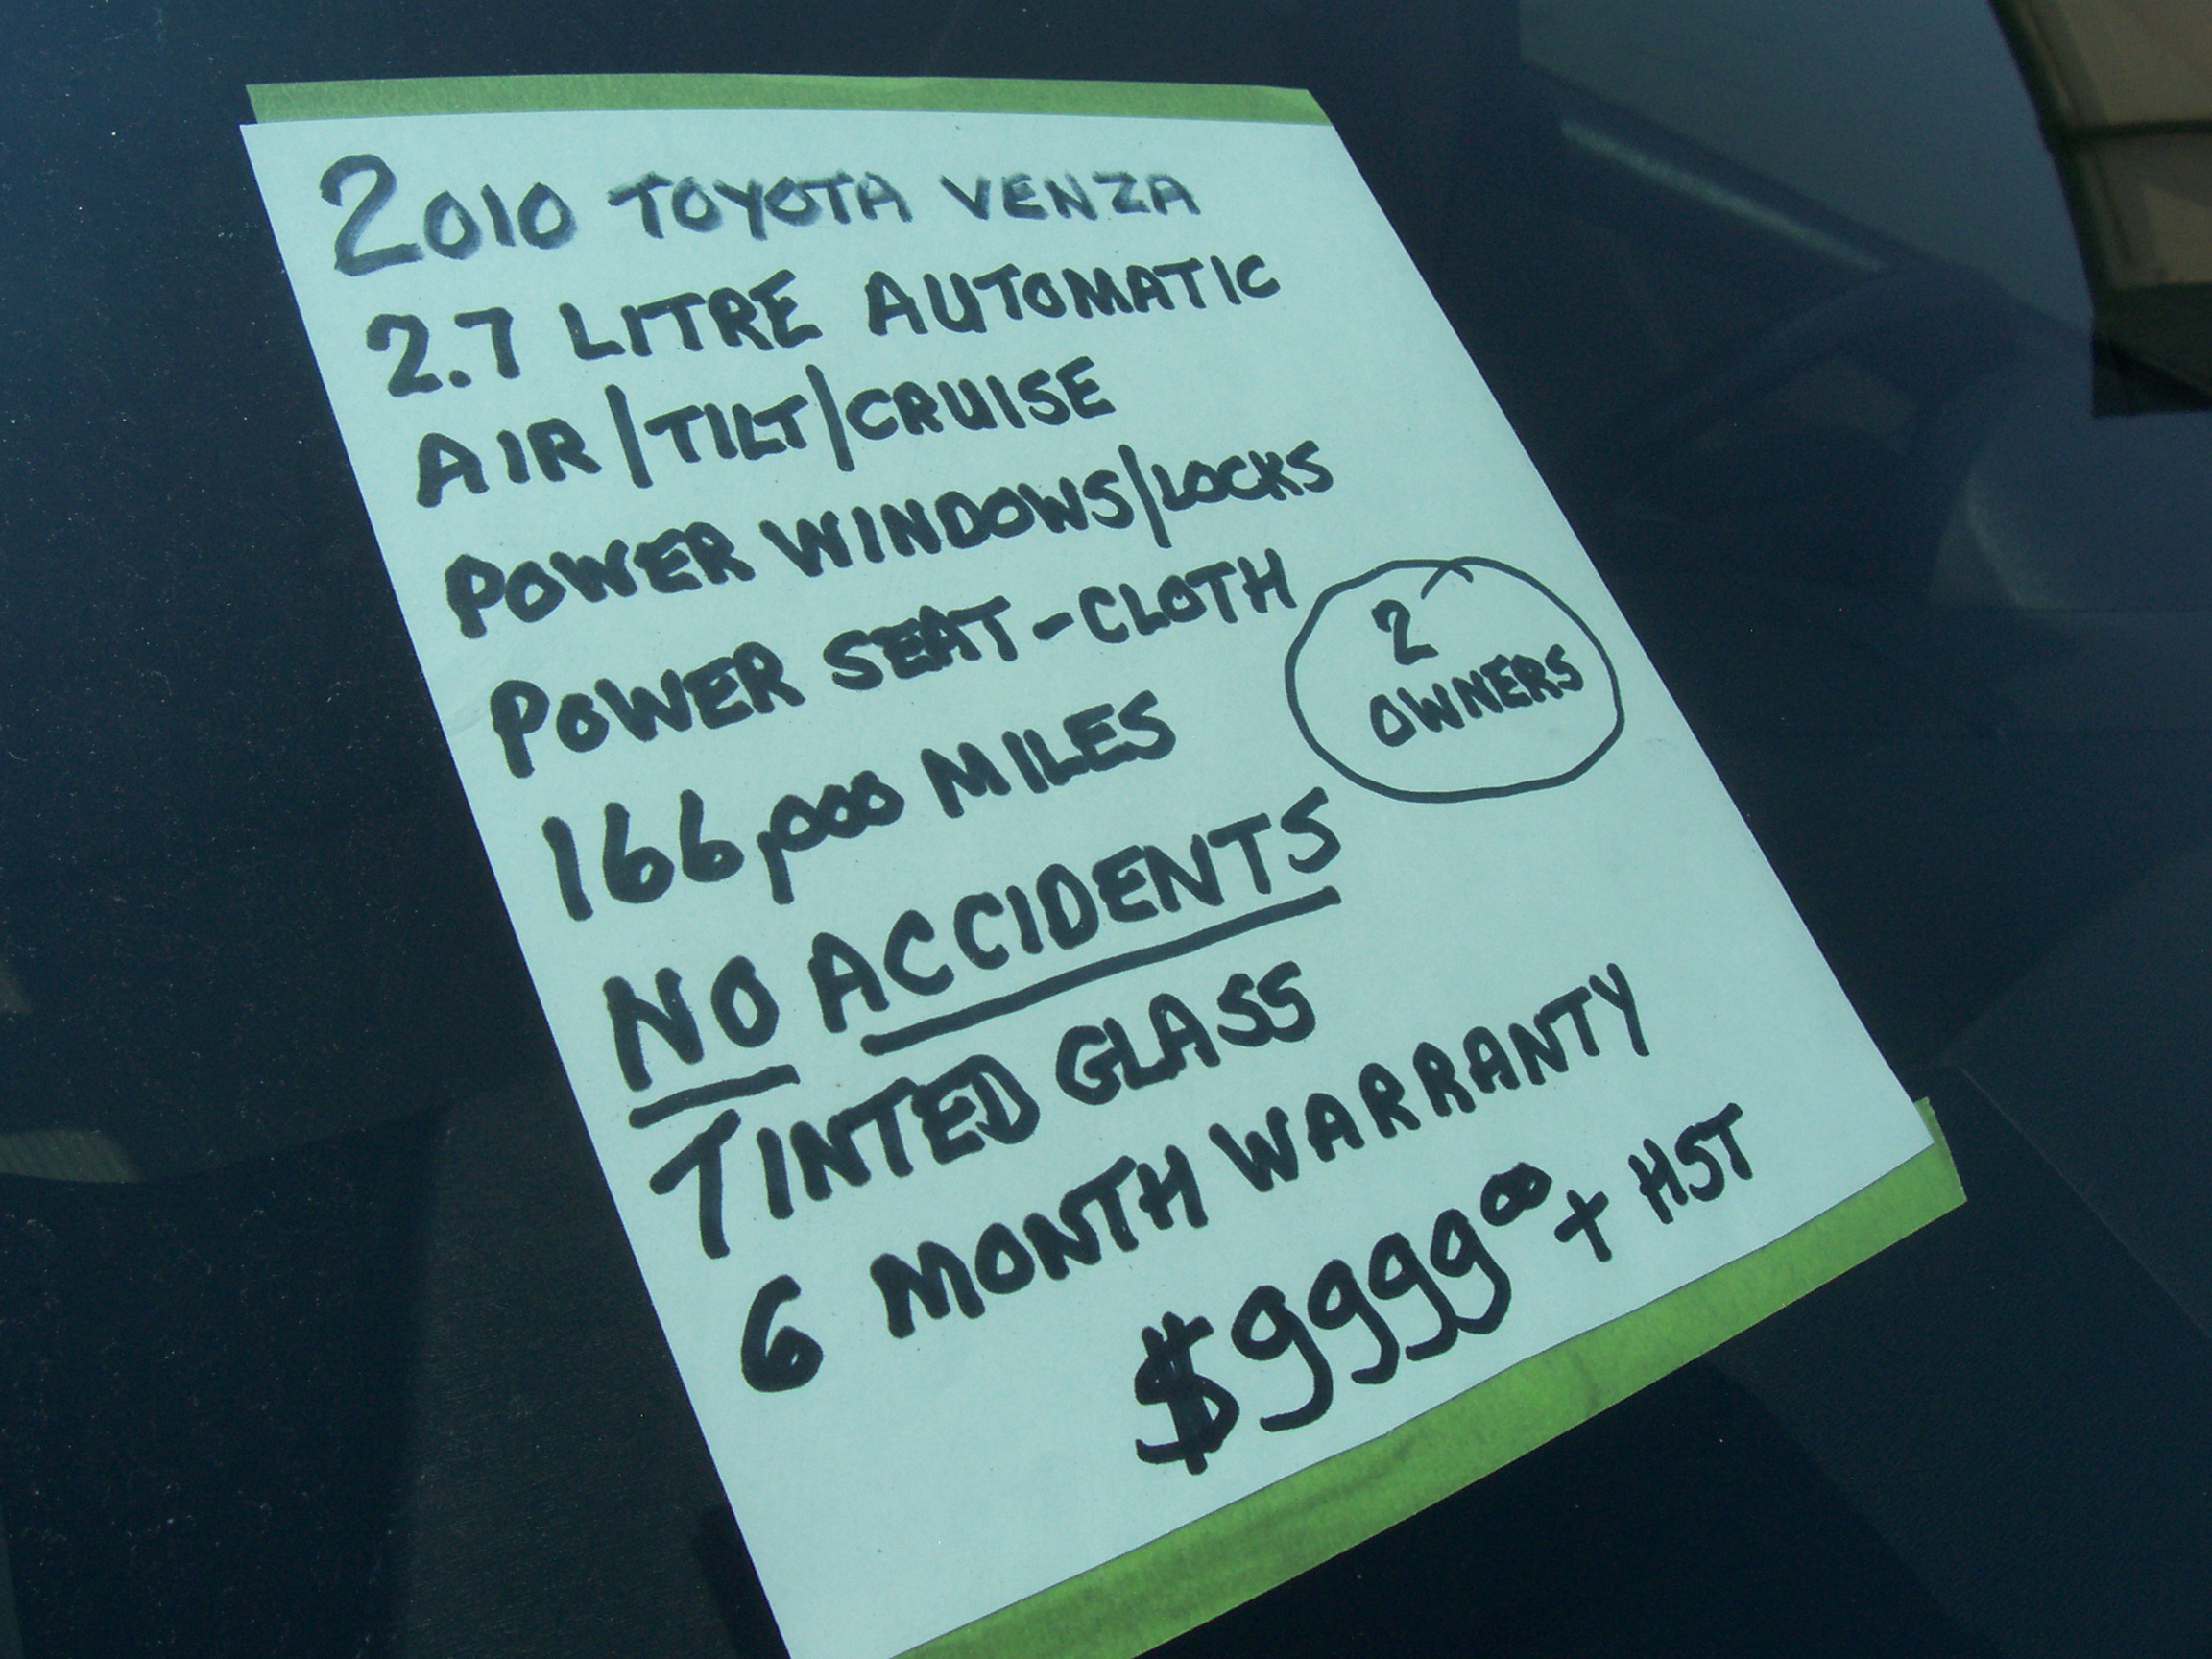 2010 TOYOTA VENZA
2.7 LITRE AUTOMATIC
AIR/TILT/CRUISE
POWER WINDOWS/LOCKS
POWER SEAT-CLOTH
2
OWNERS
166,000 MILES
NO ACCIDENTS
TINTED GLASS
6 MONTH WARRANTY
$9999.00 + HST